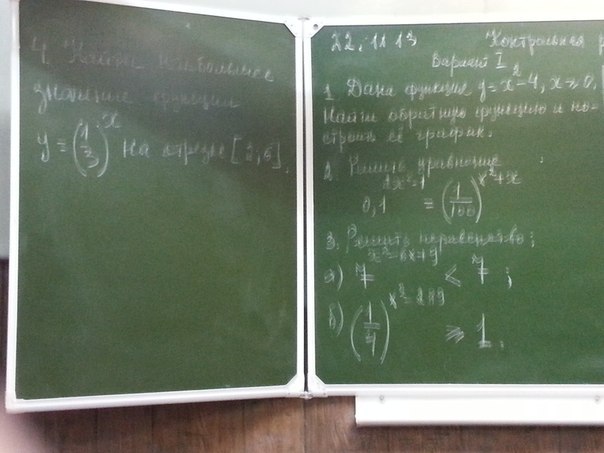 4. Найти наибольшее
значение функции
y = (1/3)^x на отрезке [2; 6].
22.11.13 Контрольная р
Вариант I
1. Дана функция y = x² - 4, x ≥ 0,
Найти обратную функцию и по-
строить её график.
2. Решить уравнение
= (1/100)^x²+x
3. Решить неравенство;
а) 7^x²-6x+9 ≤ 7 ;
б) (1/4) ≥ 1.